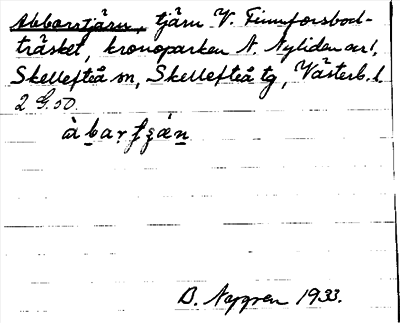 Abborrtjärn, tjärn V. Finnforsbod-
träsket, kronoparken N. Nyliden är!,
Skellefteå sn, Skellefteå tg, Västerb. l.
2 G. 50.
àbarʃʒǽn
B. Nygren 1933.